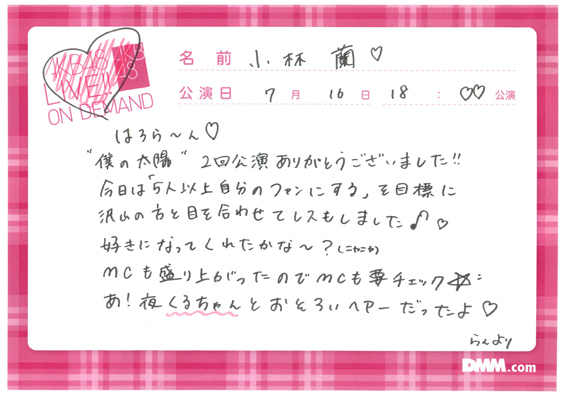 AKB48
LIVE!!
ON DEMAND
名前 小林 蘭♡
公演日 7月 16日 18:♡♡ 公演
はろら〜ん♡
"僕の太陽" 2回公演ありがとうございました!!
今日は「5人以上自分のファンにする」を目標に
沢山の方と目を合わせてレスもしました♪♡
好きになってくれたかな〜?(ニヤニヤ)
MCも盛り上がったのでMCも要チェック☆
あ!夜くるちゃんとおそろいヘアーだったよ♡
らんより
DMM.com